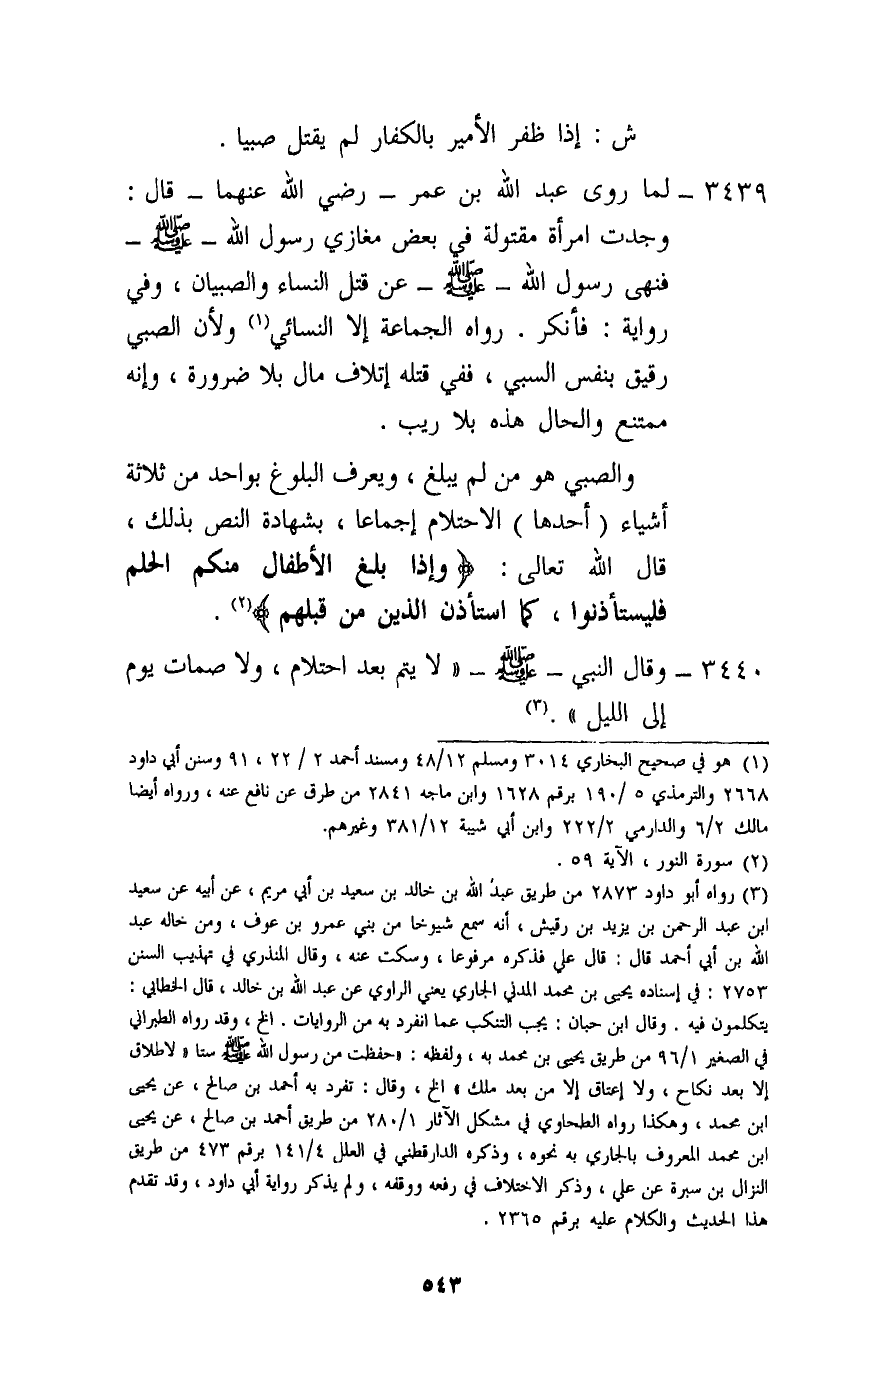 ش : إذا ظفر الأمير بالكفار لم يقتل صبيا .
٣٤٣٩ ـ لما روى عبد الله بن عمر ـ رضي الله عنهما ـ قال :
وجدت امرأة مقتولة في بعض مغازي رسول الله ـ ﷺ ـ
فنهى رسول الله ـ ﷺ ـ عن قتل النساء والصبيان ، وفي
رواية : فأنكر . رواه الجماعة إلا النسائي(١) ولأن الصبي
رقيق بنفس السبي ، ففي قتله إتلاف مال بلا ضرورة ، وإنه
ممتنع والحال هذه بلا ريب .
والصبي هو من لم يبلغ ، ويعرف البلوغ بواحد من ثلاثة
أشياء ( أحدها ) الاحتلام إجماعا ، بشهادة النص بذلك ،
قال الله تعالى : ﴿ وإذا بلغ الأطفال منكم الحلم
فليستأذنوا ، كما استأذن الذين من قبلهم ﴾(٢) .
٣٤٤٠ ـ وقال النبي ـ ﷺ ـ « لا يتم بعد احتلام ، ولا صمات يوم
إلى الليل » .(٣)
(١) هو في صحيح البخاري ٣٠١٤ ومسلم ٤٨/١٢ ومسند أحمد ٢ / ٢٢ ، ٩١ وسنن أبي داود
٢٦٦٨ والترمذي ٥ /١٩٠ برقم ١٦٢٨ وابن ماجه ٢٨٤١ من طرق عن نافع عنه ، ورواه أيضا
مالك ٦/٢ والدارمي ٢٢٢/٢ وابن أبي شيبة ٣٨١/١٢ وغيرهم.
(٢) سورة النور ، الآية ٥٩ .
(٣) رواه أبو داود ٢٨٧٣ من طريق عبدُ الله بن خالد بن سعيد بن أبي مريم ، عن أبيه عن سعيد
ابن عبد الرحمن بن يزيد بن رقيش ، أنه سمع شيوخا من بني عمرو بن عوف ، ومن خاله عبد
الله بن أبي أحمد قال : قال علي فذكره مرفوعا ، وسكت عنه ، وقال المنذري في تهذيب السنن
٢٧٥٣ : في إسناده يحيى بن محمد المدني الجاري يعني الراوي عن عبد الله بن خالد ، قال الخطابي :
يتكلمون فيه . وقال ابن حبان : يجب التنكب عما انفرد به من الروايات . الخ ، وقد رواه الطبراني
في الصغير ٩٦/١ من طريق يحيى بن محمد به ، ولفظه : «حفظت من رسول الله ﷺ ستا « لاطلاق
إلا بعد نكاح ، ولا إعتاق إلا من بعد ملك » الخ ، وقال : تفرد به أحمد بن صالح ، عن يحيى
ابن محمد ، وهكذا رواه الطحاوي في مشكل الآثار ٢٨٠/١ من طريق أحمد بن صالح ، عن يحيى
ابن محمد المعروف بالجاري به نحوه ، وذكره الدارقطني في العلل ١٤١/٤ برقم ٤٧٣ من طريق
النزال بن سبرة عن علي ، وذكر الاختلاف في رفعه ووقفه ، ولم يذكر رواية أبي داود ، وقد تقدم
هذا الحديث والكلام عليه برقم ٢٣٦٥ .
٥٤٣